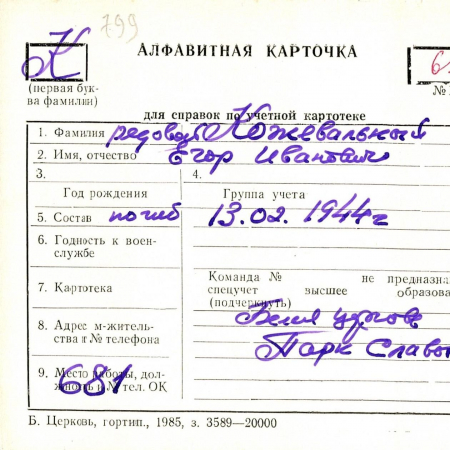 799
АЛФАВИТНАЯ КАРТОЧКА
К
6
(первая бук-
ва фамилии)
№
для справок по учетной картотеке
1. Фамилия рядовой Кожевальный
2. Имя, отчество Егор Иванович
3.
4.
Год рождения
Группа учета
5. Состав погиб 13.02.1944г
6. Годность к воен-
службе
Команда № не предназна
7. Картотека
спецучет высшее образова
(подчеркнуть)
8. Адрес м-житель-
ства и № телефона
Белая церковь
Парк Славы
9. Место работы, дол-
жность и № тел. ОК
681
Б. Церковь, гортип., 1985, з. 3589—20000